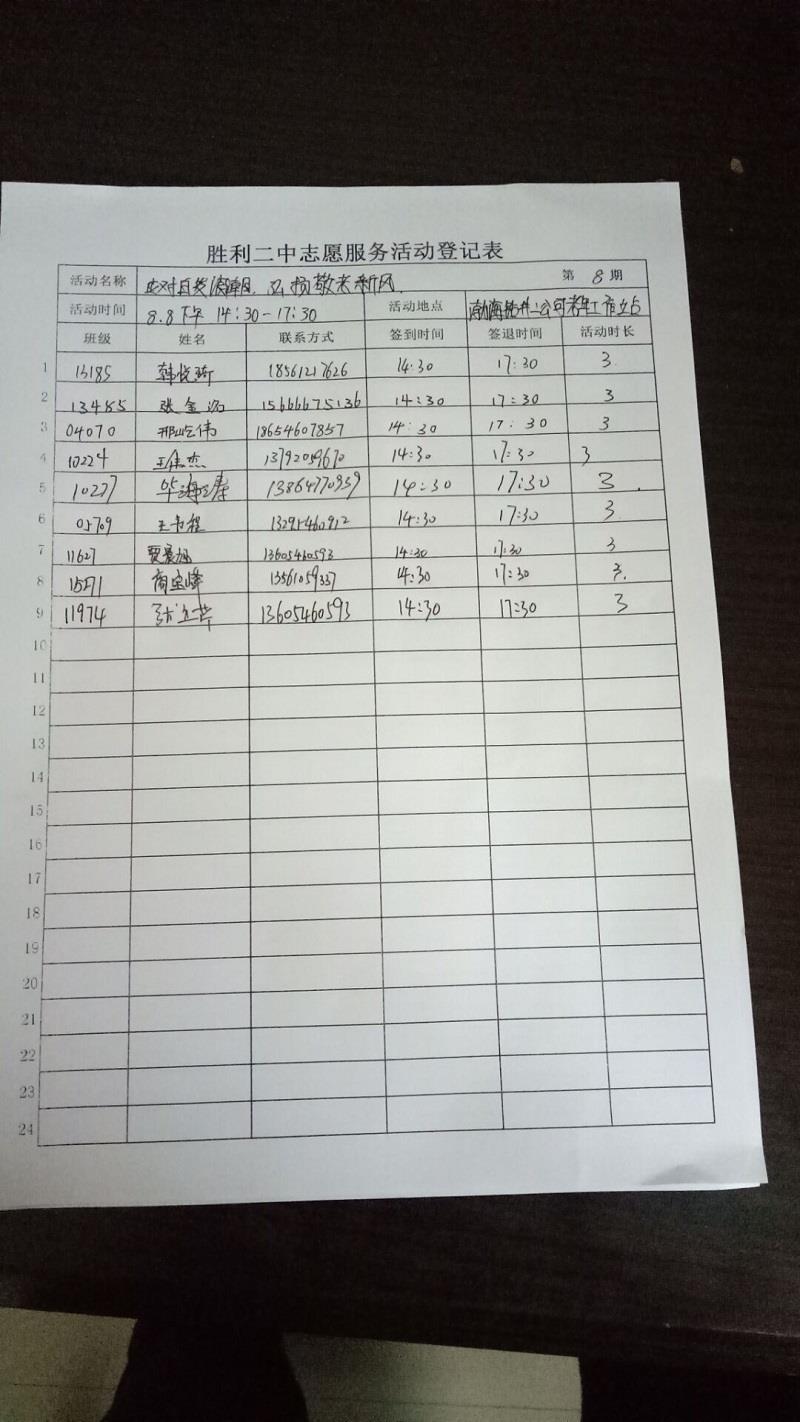 胜利二中志愿服务活动登记表
活动名称 应对自然 弘扬敬老新风 第 8 期
活动时间 8.8下午 14:30-17:30 活动地点 渤海钻井二公司老年工作站
班级 姓名 联系方式 签到时间 签退时间 活动时长
1 13185 韩悦 18561217626 14:30 17:30 3
2 13485 张金 15666675136 14:30 17:30 3
3 04070 邢屹伟 18654607857 14:30 17:30 3
4 10224 王伟杰 13792059670 14:30 17:30 3
5 10227 毕海涛 13864770959 14:30 17:30 3
6 05709 王 程 13291460912 14:30 17:30 3
7 11627 贾晨旭 13605460593 14:30 17:30 3
8 商宝峰 14:30 17:30 3
9 11974 张立芹 13605460593 14:30 17:30 3
10
11
12
13
14
15
16
17
18
19
20
21
22
23
24